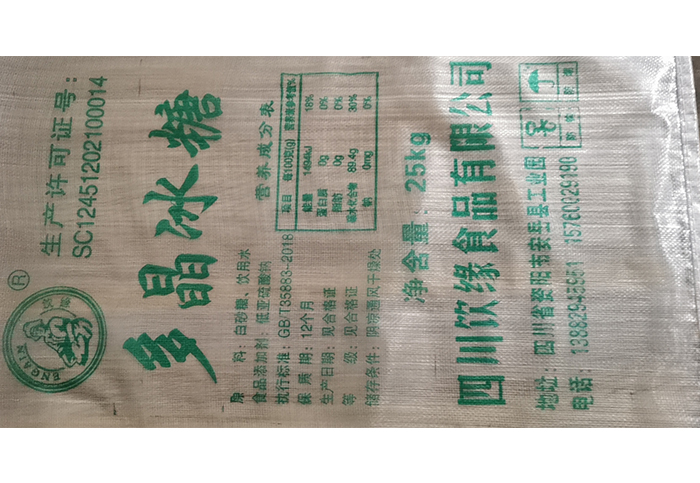 ®
生产许可证号:
SC12451202100014
多晶冰糖
原 料: 白砂糖、饮用水
食品添加剂: 低亚硫酸钠
执行标准: GB/T35883-2018
保 质 期: 12个月
生产日期: 见合格证
等 级: 见合格证
储存条件: 阴凉通风干燥处
营养成分表
项目 每100克(g) 营养素参考值%
能量 1494kJ 18%
蛋白质 0g 0%
脂肪 0g 0%
碳水化合物 89.4g 30%
钠 0mg 0%
净含量: 25kg
四川饮缘食品有限公司
地址: 四川省资阳市安岳县工业园
电话: 13882945951 15760029190